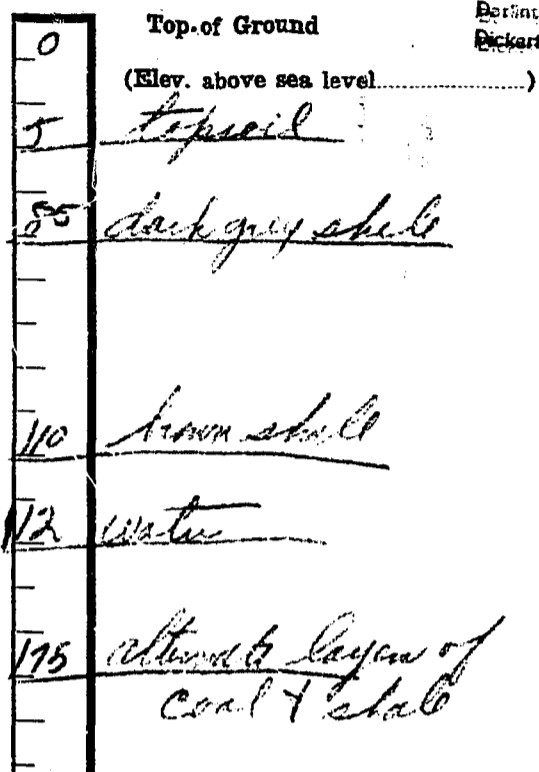 0 Top of Ground
(Elev. above sea level....................)
5 topsoil
85 dark grey shale
110 brown shale
112 water
175 alternate layers of
coal & shale